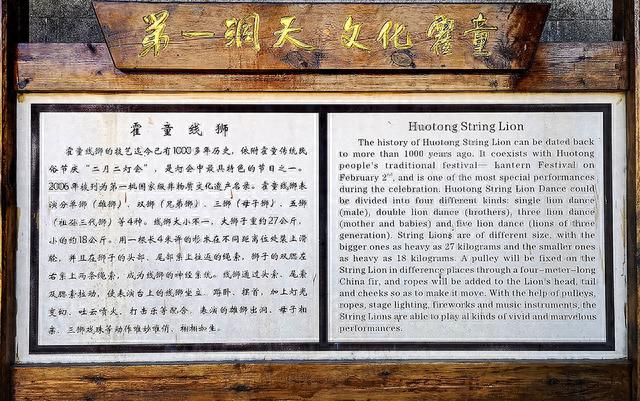 第一洞天 文化霍童
霍童线狮
霍童线狮的技艺迄今已有1000多年历史，依附霍童传统民
俗节庆“二月二灯会”，是灯会中最具特色的节目之一。
2006年被列为第一批国家级非物质文化遗产名录。霍童线狮表
演分单狮（雄狮）、双狮（兄弟狮）、三狮（母子狮）、五狮
（祖孙三代狮）等4种。线狮大小不一，大狮子重约27公斤，
小的约18公斤。用一根长4米许的杉木在不同距离位处装上滑
轮，并且在狮子的头部、尾部系上拉返的绳索，狮子的双腮左
右系上两条绳索，成为线狮的神经系统。线狮通过头索、尾索
及腮索拉动，使表演台上的线狮坐立、蹲卧、摆首，加上灯光
变幻、吐云喷火、打击乐等配合，表演的雄狮出洞、母子相
亲、三狮戏珠等动作难妙难俏、栩栩如生。
Huotong String Lion
The history of Huotong String Lion can be dated back
to more than 1000 years ago. It coexists with Huotong
people's traditional festival— Lantern Festival on
February 2nd, and is one of the most special performances
during the celebration. Huotong String Lion Dance could
be divided into four different kinds: single lion dance
(male), double lion dance (brothers), three lion dance
(mother and babies) and five lion dance (lions of three
generation). String Lions are of different size, with the
bigger ones as heavy as 27 kilograms and the smaller ones
as heavy as 18 kilograms. A pulley will be fixed on the
String Lion in difference places through a four-meter-long
China fir, and ropes will be added to the Lion's head, tail
and cheeks so as to make it move. With the help of pulleys,
ropes, stage lighting, fireworks and music instruments, the
String Lions are able to play al kinds of vivid and marvelous
performances.